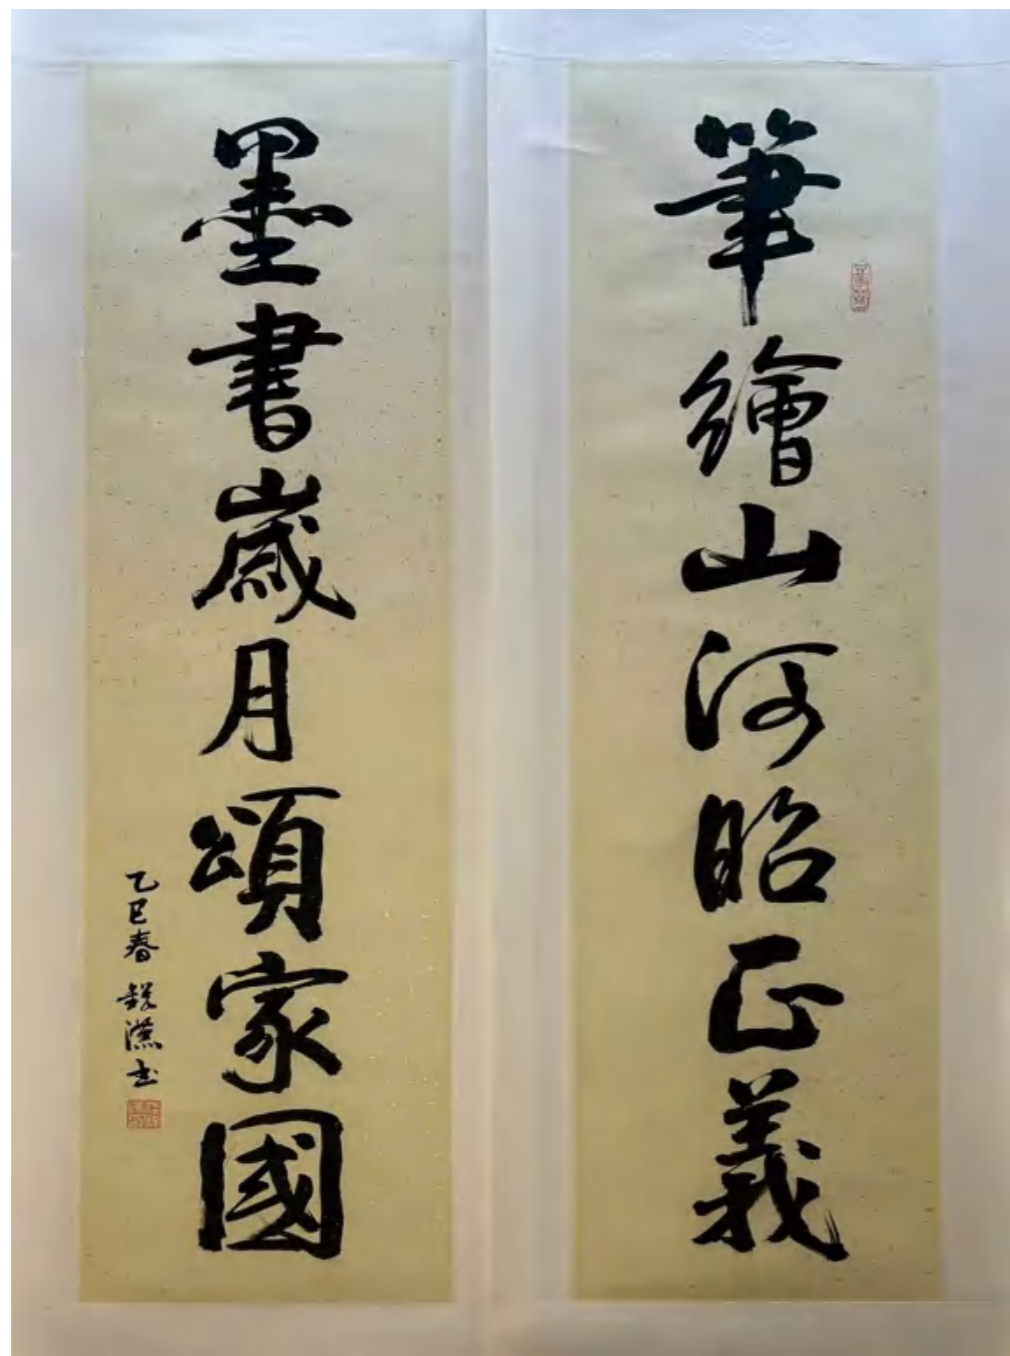 筆繪山河昭正義
墨書歲月頌家國
乙巳春